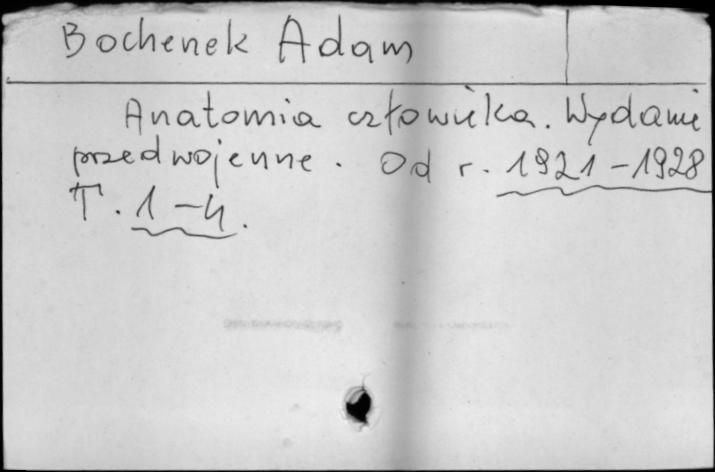 Bochenek Adam
Anatomia człowieka. Wydanie
przedwojenne. Od r. 1921-1928
T. 1-4.